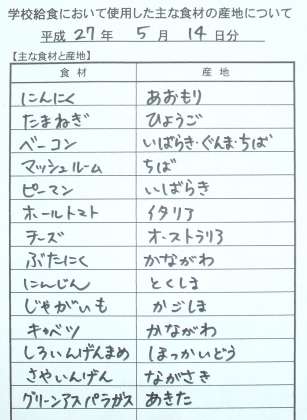 学校給食において使用した主な食材の産地について
平成 27 年 5 月 14 日分
【主な食材と産地】
食材 産地
にんにく あおもり
たまねぎ ひょうご
ベーコン いばらき・ぐんま・ちば
マッシュルーム ちば
ピーマン いばらき
ホールトマト イタリア
チーズ オーストラリア
ぶたにく かながわ
にんじん とくしま
じゃがいも かごしま
キャベツ かながわ
しろいんげんまめ ほっかいどう
さやいんげん ながさき
グリーンアスパラガス あきた